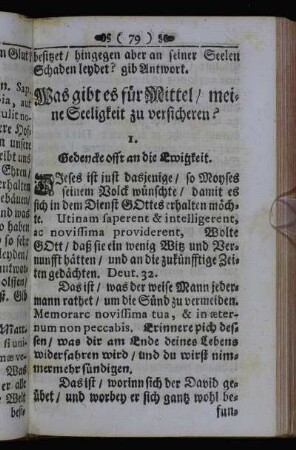 ( 79 )
besitzet / hingegen aber an seiner Seelen
Schaden leydet? gib Antwort.
Was gibt es für Mittel / mei-
ne Seeligkeit zu versicheren?
1.
Gedencke offt an die Ewigkeit.
DIeses ist just dasjenige / so Moyses
seinem Volck wünschte / damit es
sich in dem Dienst GOttes erhalten möch-
te. Utinam saperent & intelligerent,
ac novissima providerent, Wolte
GOtt / daß sie ein wenig Witz und Ver-
nunfft hätten / und an die zukünfftige Zei-
ten gedächten. Deut. 32.
Das ist / was der weise Mann jeder-
mann rathet / um die Sünd zu vermeiden.
Memorare novissima tua, & in æter-
num non peccabis. Erinnere dich des-
sen / was dir am Ende deines Lebens
widerfahren wird / und du wirst nim-
mermehr sündigen.
Das ist / worinn sich der David ge-
übet / und worbey er sich gantz wohl be-
fun-